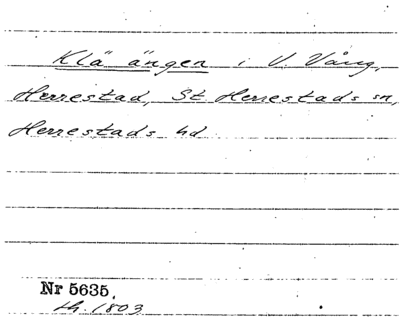 Klä ängen i V. Vång,
Herrestad, St Herrestads sn,
Herrestads hd
Nr 5635.
1803